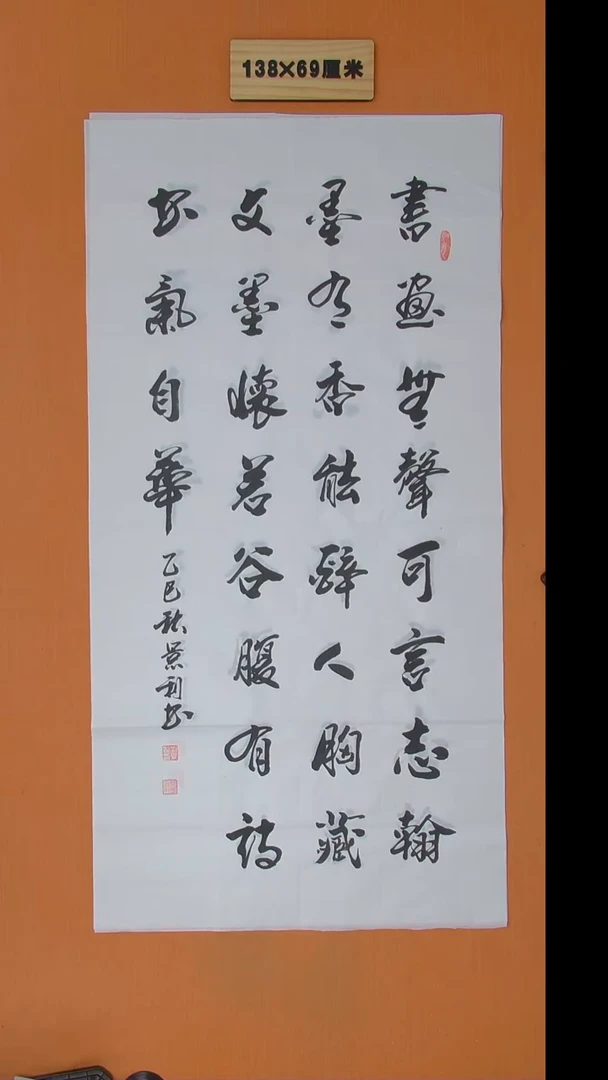 138×69厘米
書畫無聲可言志翰
墨有香能醉人胸藏
文墨懷若谷腹有詩
书氣自華
乙巳秋景利书